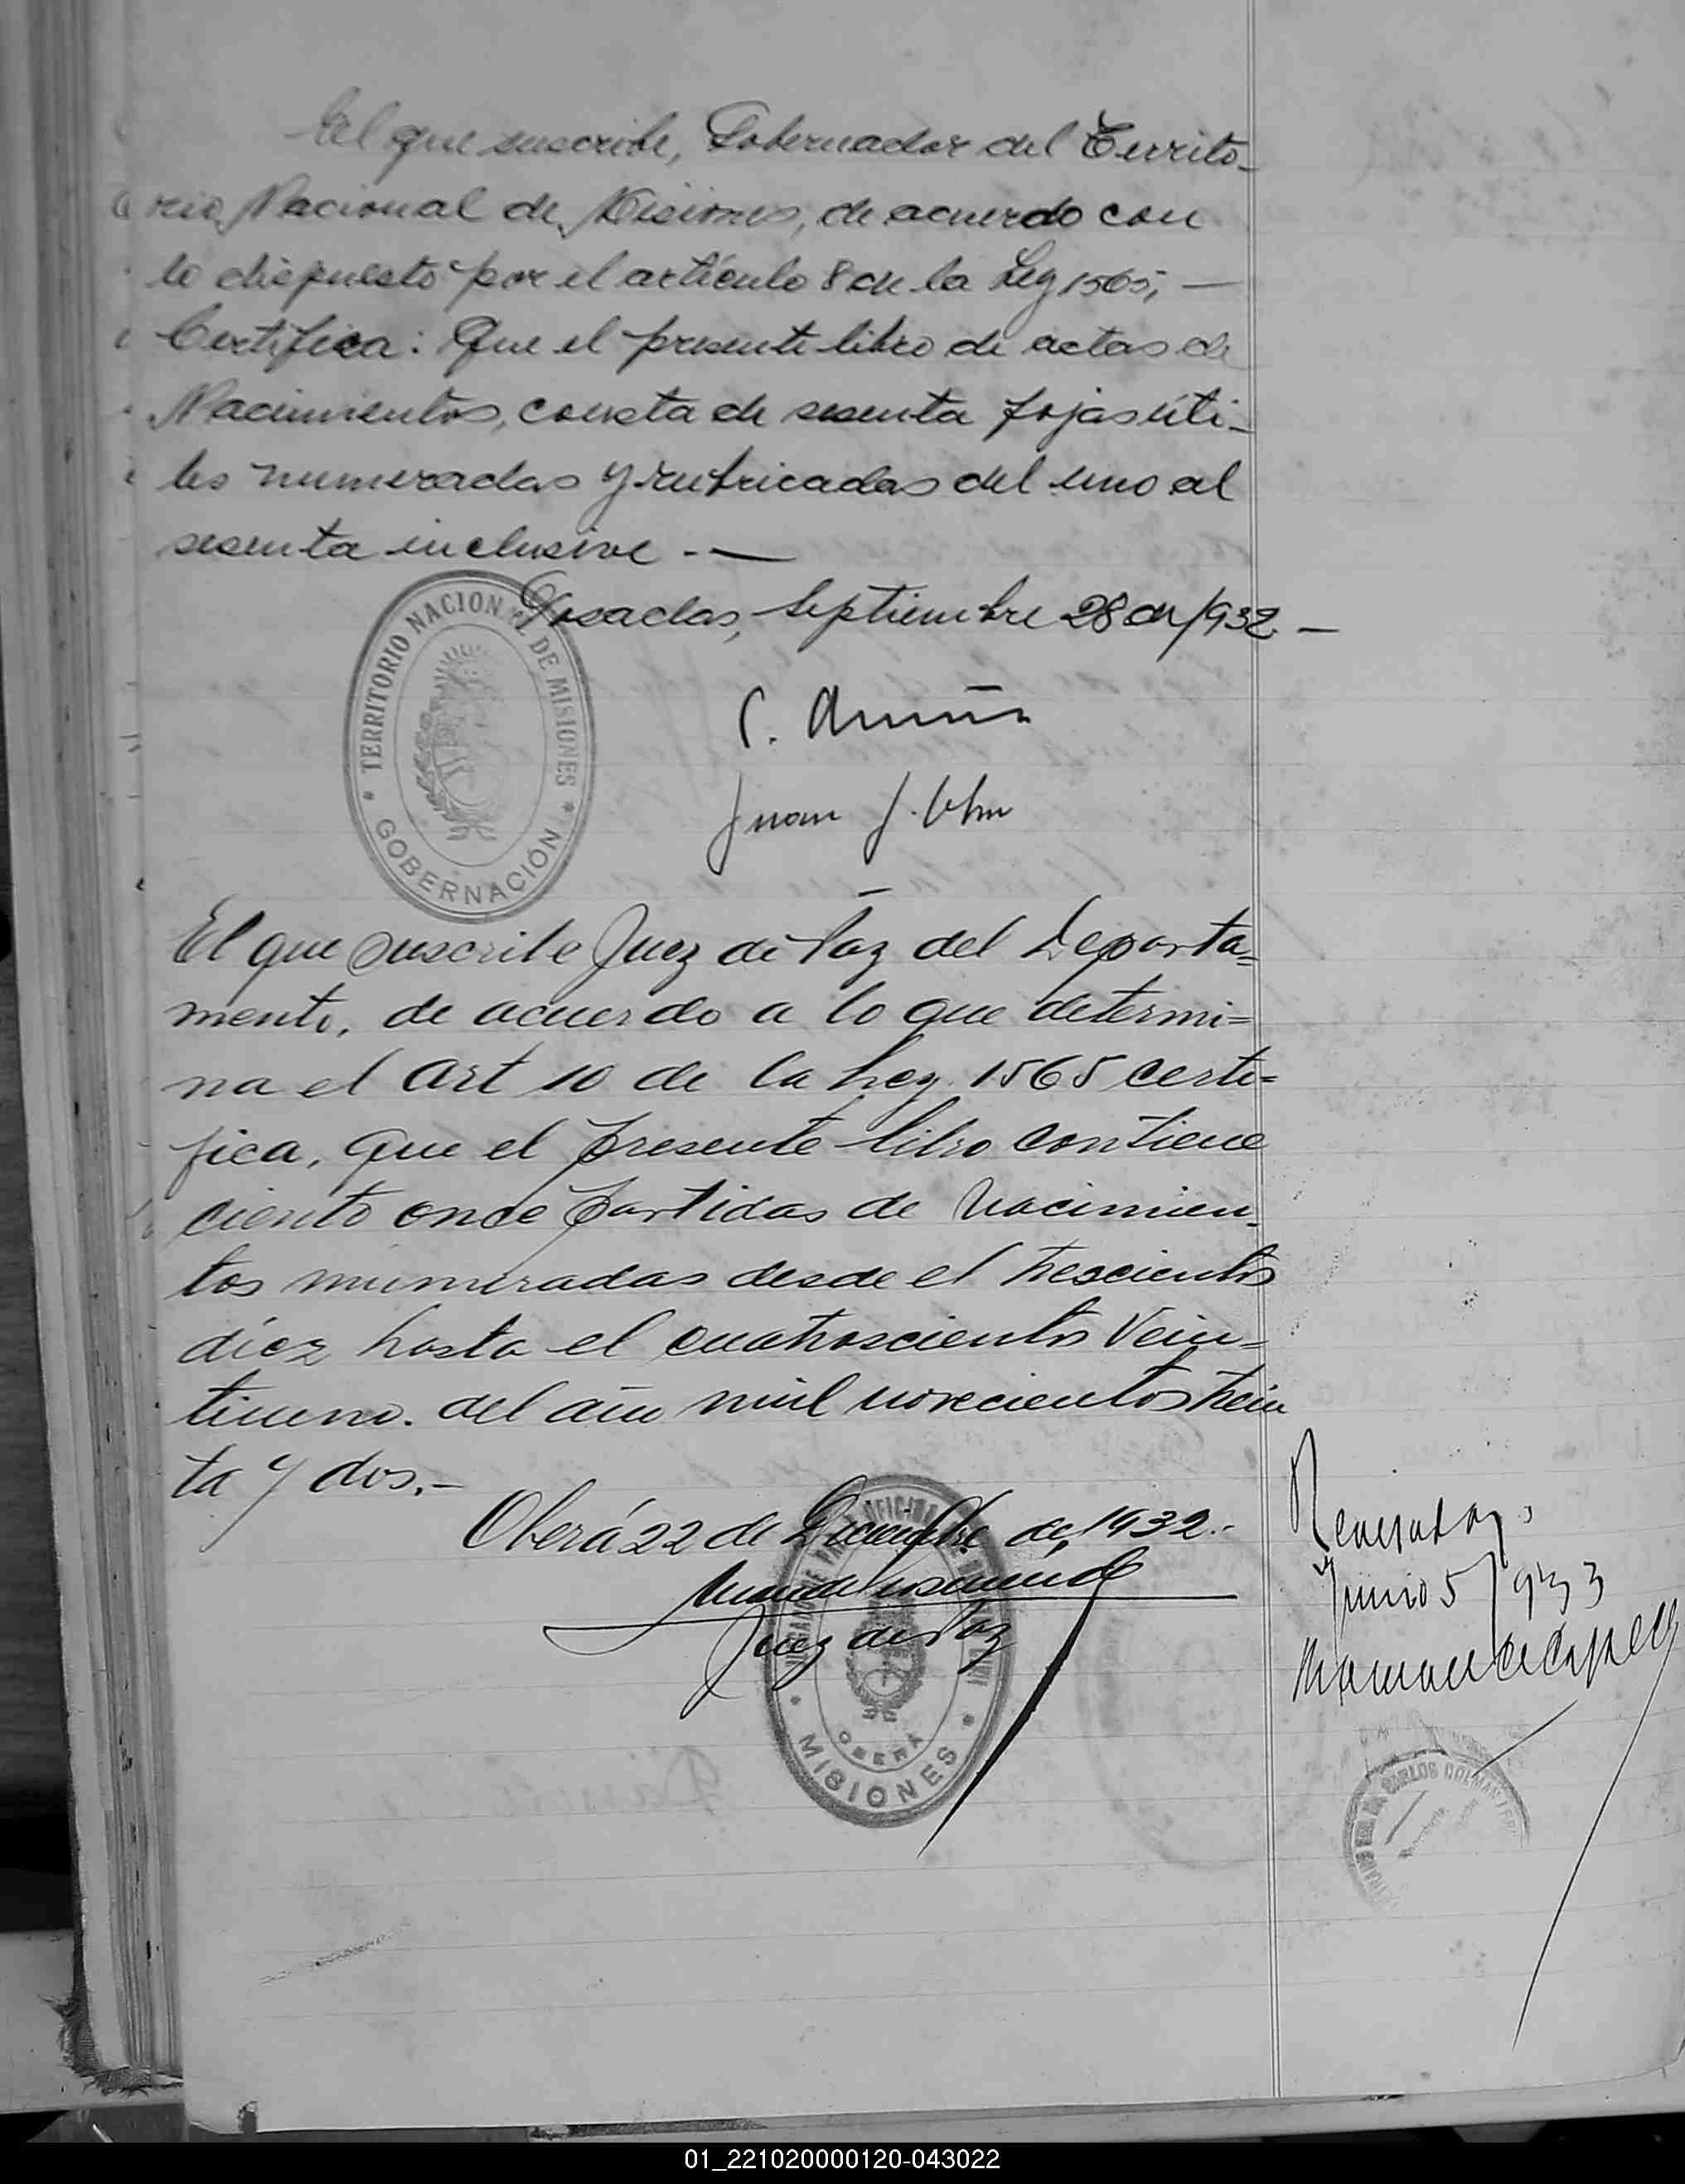 El que suscribe, Gobernador del Territo-
rio Nacional de Misiones, de acuerdo con
lo dispuesto por el artículo 8 de la Ley 1565, —
Certifica: Que el presente libro de actas de
Nacimientos, consta de sesenta fojas úti-
les numeradas y rubricadas del uno al
sesenta inclusive.-—
Posadas, Septiembre 28 de 1932.—
TERRITORIO NACIONAL DE MISIONES
GOBERNACIÓN
C. Acuña
Juan J.
El que suscribe Juez de Paz del Departa=
mento, de acuerdo a lo que determi=
na el Art 10 de la Ley 1565 certi=
fica, que el presente libro contiene
ciento once partidas de Nacimien-
tos numeradas desde el trescientos
diez hasta el cuatroscientos Vein=
tiuno. del año mil novecientos trein
ta y dos.-
Oberá 22 de Diciembre de 1932.-
Juez de Paz
OBERÁ
MISIONES
Junio 5/933
CARLOS
01_221020000120-043022